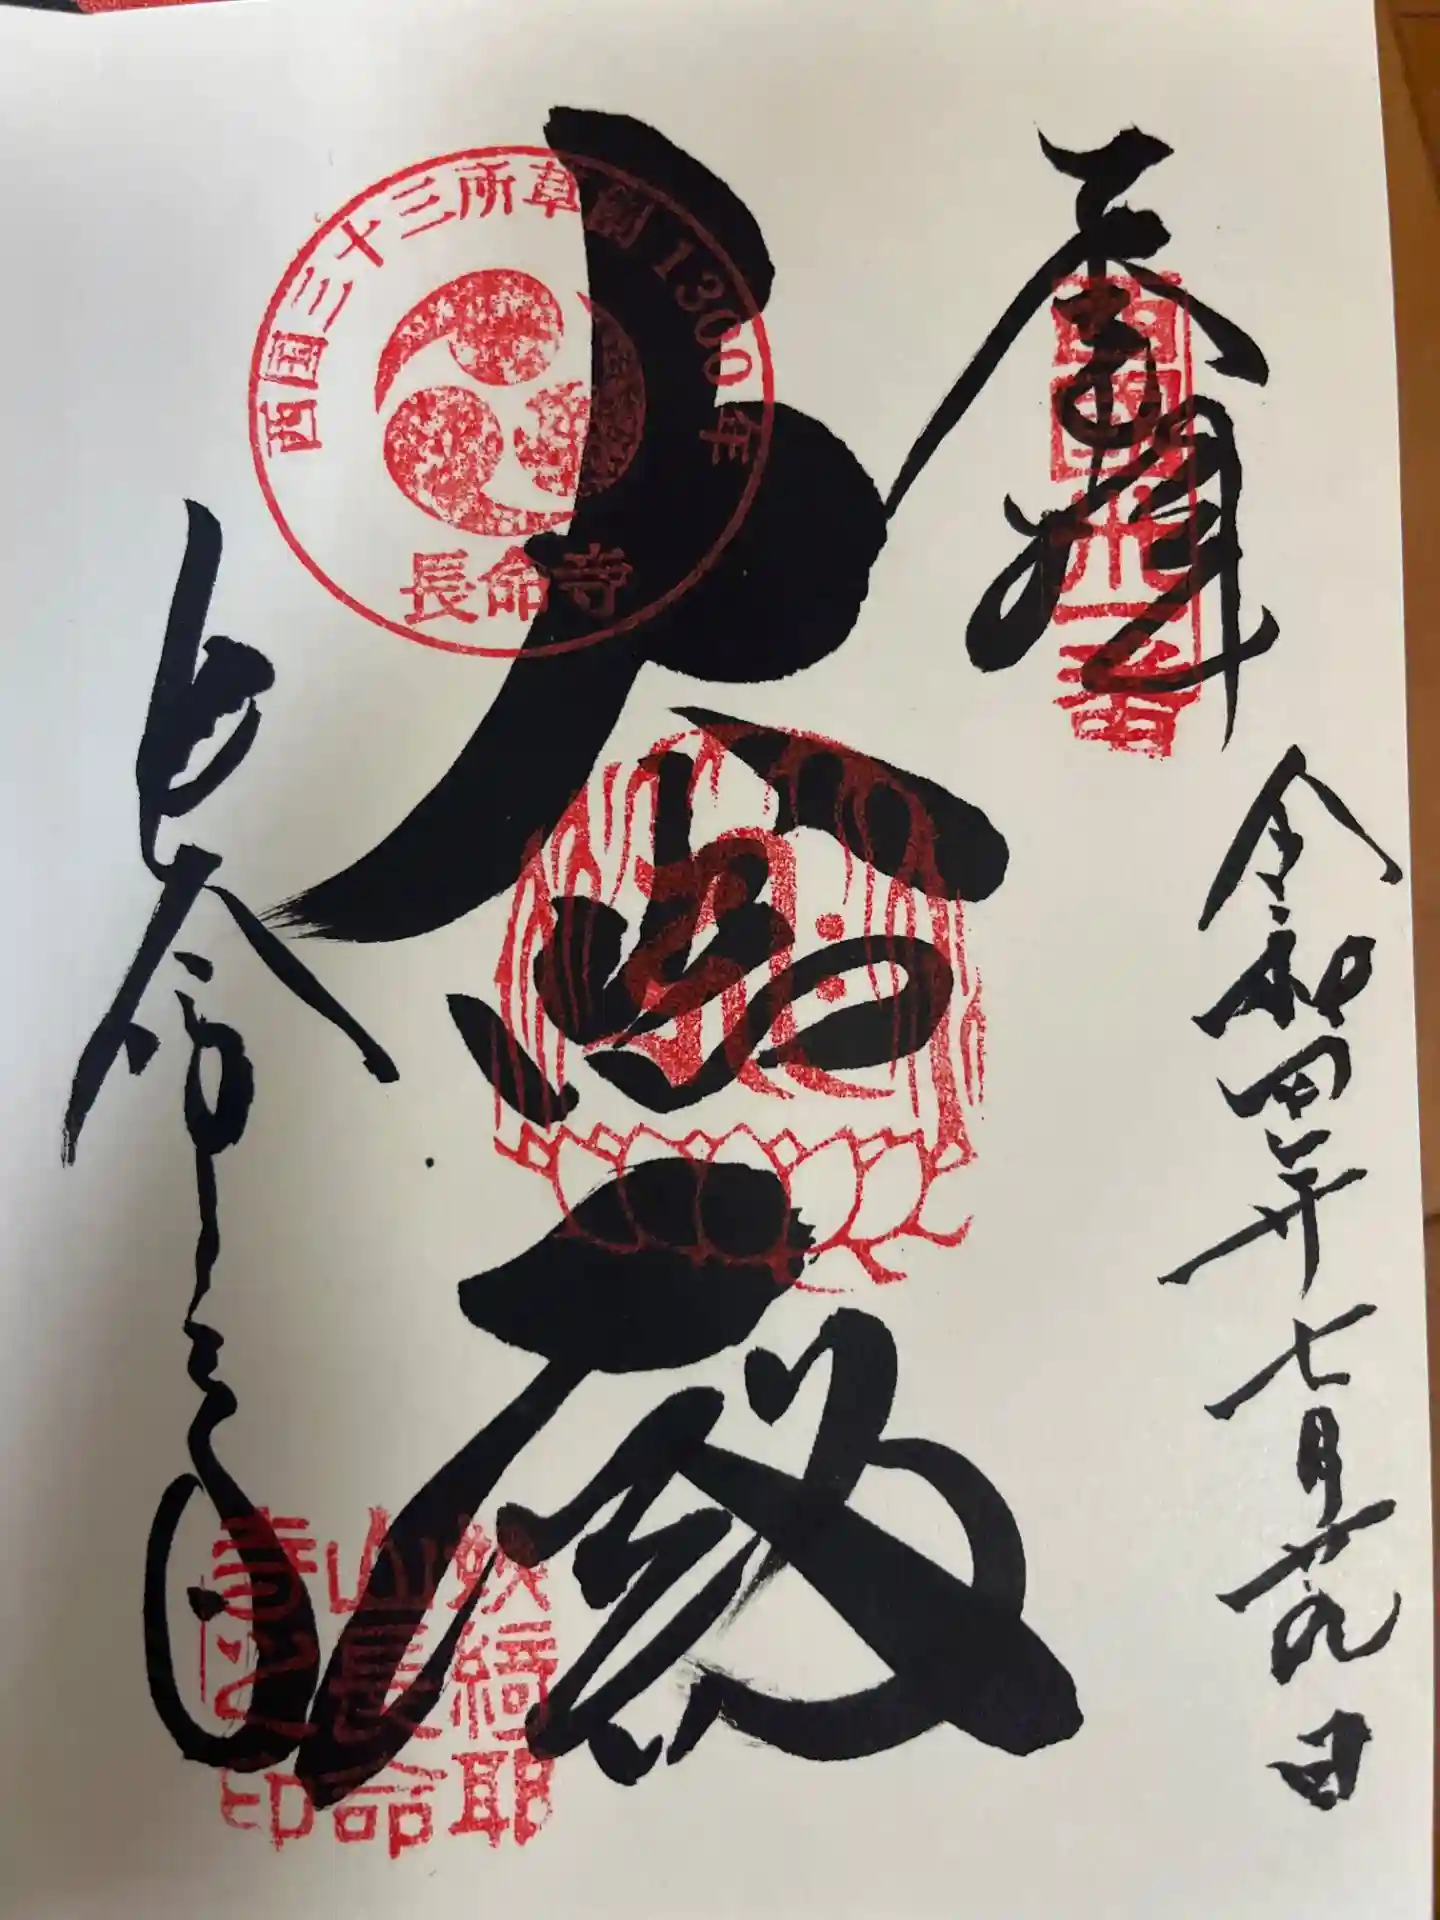 奉拝
西国三十一番
令和四年七月十九日
西国三十三所草創1300年
長命寺
大悲殿
長命寺
姨綺耶
山長命
寺之印